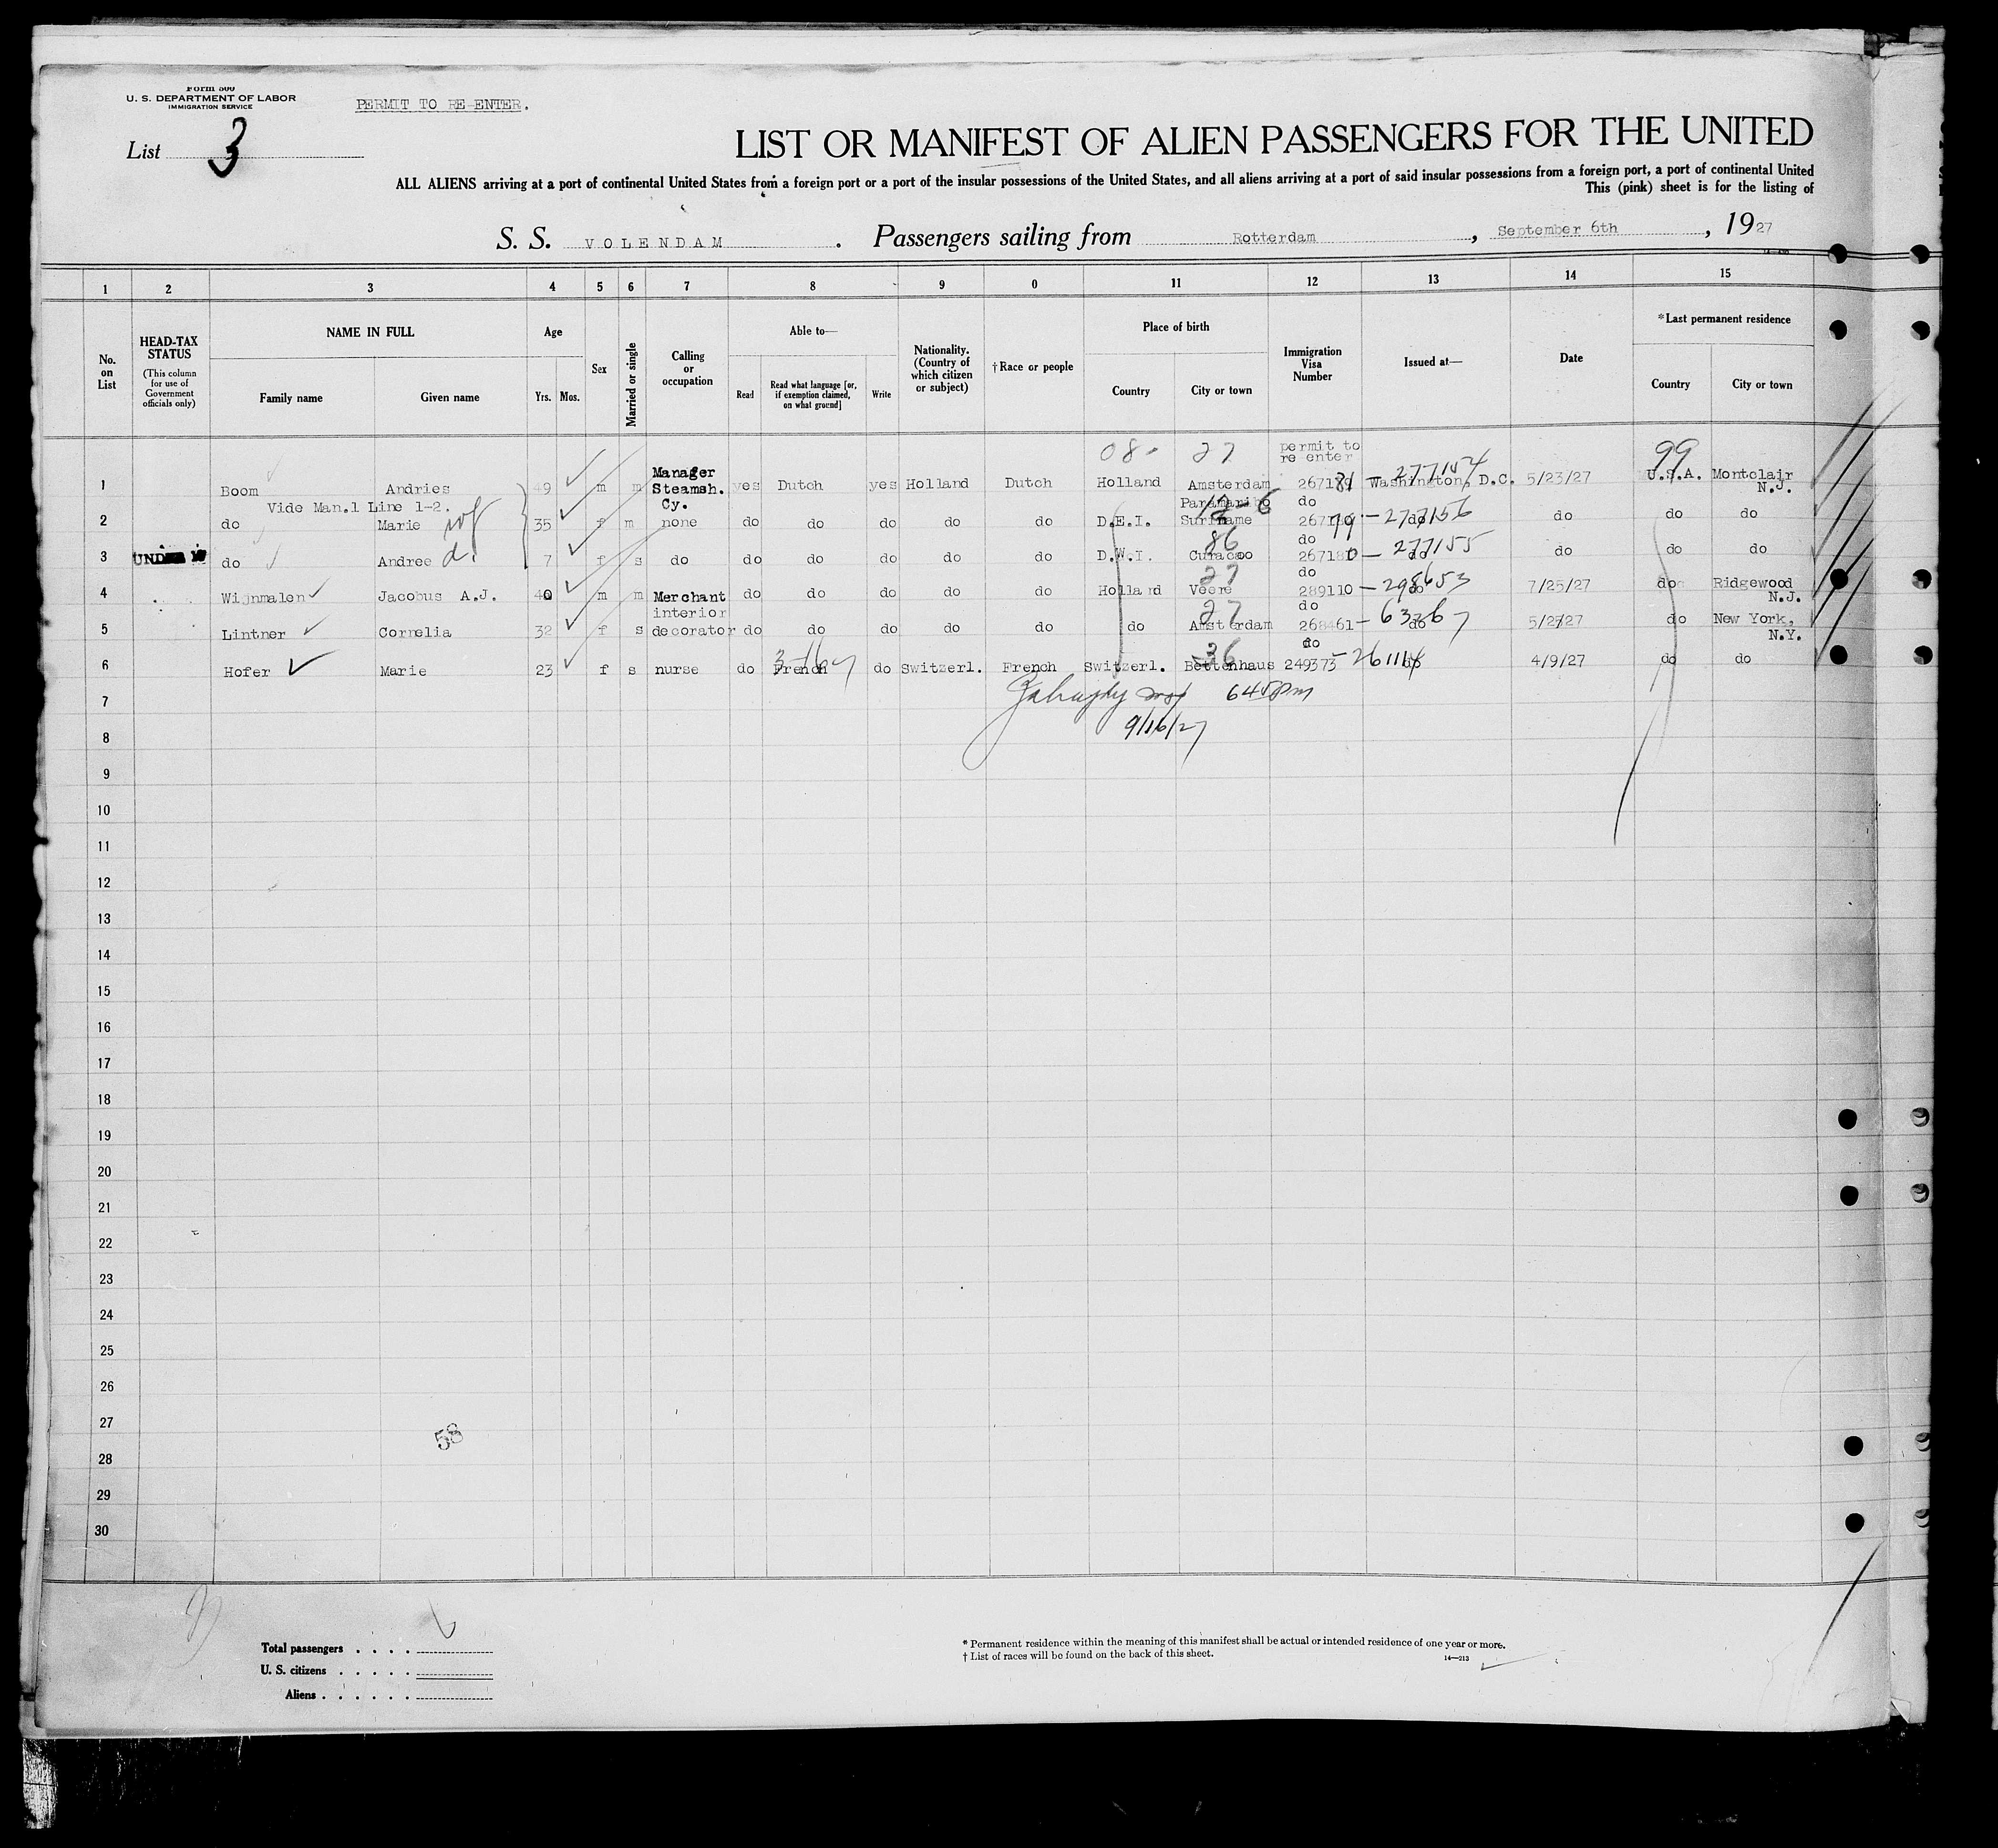 Form 500
U. S. DEPARTMENT OF LABOR
IMMIGRATION SERVICE
PERMIT TO RE-ENTER.
List 3
LIST OR MANIFEST OF ALIEN PASSENGERS FOR THE UNITED
ALL ALIENS arriving at a port of continental United States from a foreign port or a port of the insular possessions of the United States, and all aliens arriving at a port of said insular possessions from a foreign port, a port of continental United
This (pink) sheet is for the listing of
S. S. VOLENDAM . Passengers sailing from Rotterdam , September 6th , 1927
1 2 3 4 5 6 7 8 9 0 11 12 13 14 15
No. on List
HEAD-TAX STATUS (This column for use of Government officials only)
NAME IN FULL
Family name Given name
Age
Yrs. Mos.
Sex
Married or single
Calling or occupation
Able to—
Read
Read what language [or, if exemption claimed, on what ground]
Write
Nationality. (Country of which citizen or subject)
†Race or people
Place of birth
Country City or town
Immigration Visa Number
Issued at—
Date
*Last permanent residence
Country City or town
08- 27 permit to re-enter 99
1 Boom Andries 49 m m Manager Steamsh. Cy. yes Dutch yes Holland Dutch Holland Amsterdam 267181 - 277154 Washington, D.C. 5/23/27 U.S.A. Montclair N.J.
Vide Man.1 Line 1-2.
2 do Marie wf 35 f m none do do do do do D.E.I. Paramaribo Suriname do 267179 - 277156 do do do do
3 UNDER do Andree d. 7 f s do do do do do do D.W.I. 86 Curacao do 267180 - 277155 do do do do
4 Wijnmalen Jacobus A.J. 40 m m Merchant do do do do do Holland 27 Veere do 289110 - 298653 do 7/25/27 do Ridgewood N.J.
5 Lintner Cornelia 32 f s interior decorator do do do do do do 27 Amsterdam do 268461 - 63767 do 5/27/27 do New York, N.Y.
6 Hofer Marie 23 f s nurse do French do Switzerl. French Switzerl. 36 Bettenhaus do 249373 - 261114 do 4/9/27 do do
7 645 pm
8 9/16/27
9
10
11
12
13
14
15
16
17
18
19
20
21
22
23
24
25
26
27
58
28
29
30
Total passengers . . . .
U. S. citizens . . . . .
Aliens . . . . . .
* Permanent residence within the meaning of this manifest shall be actual or intended residence of one year or more.
† List of races will be found on the back of this sheet.
14—213